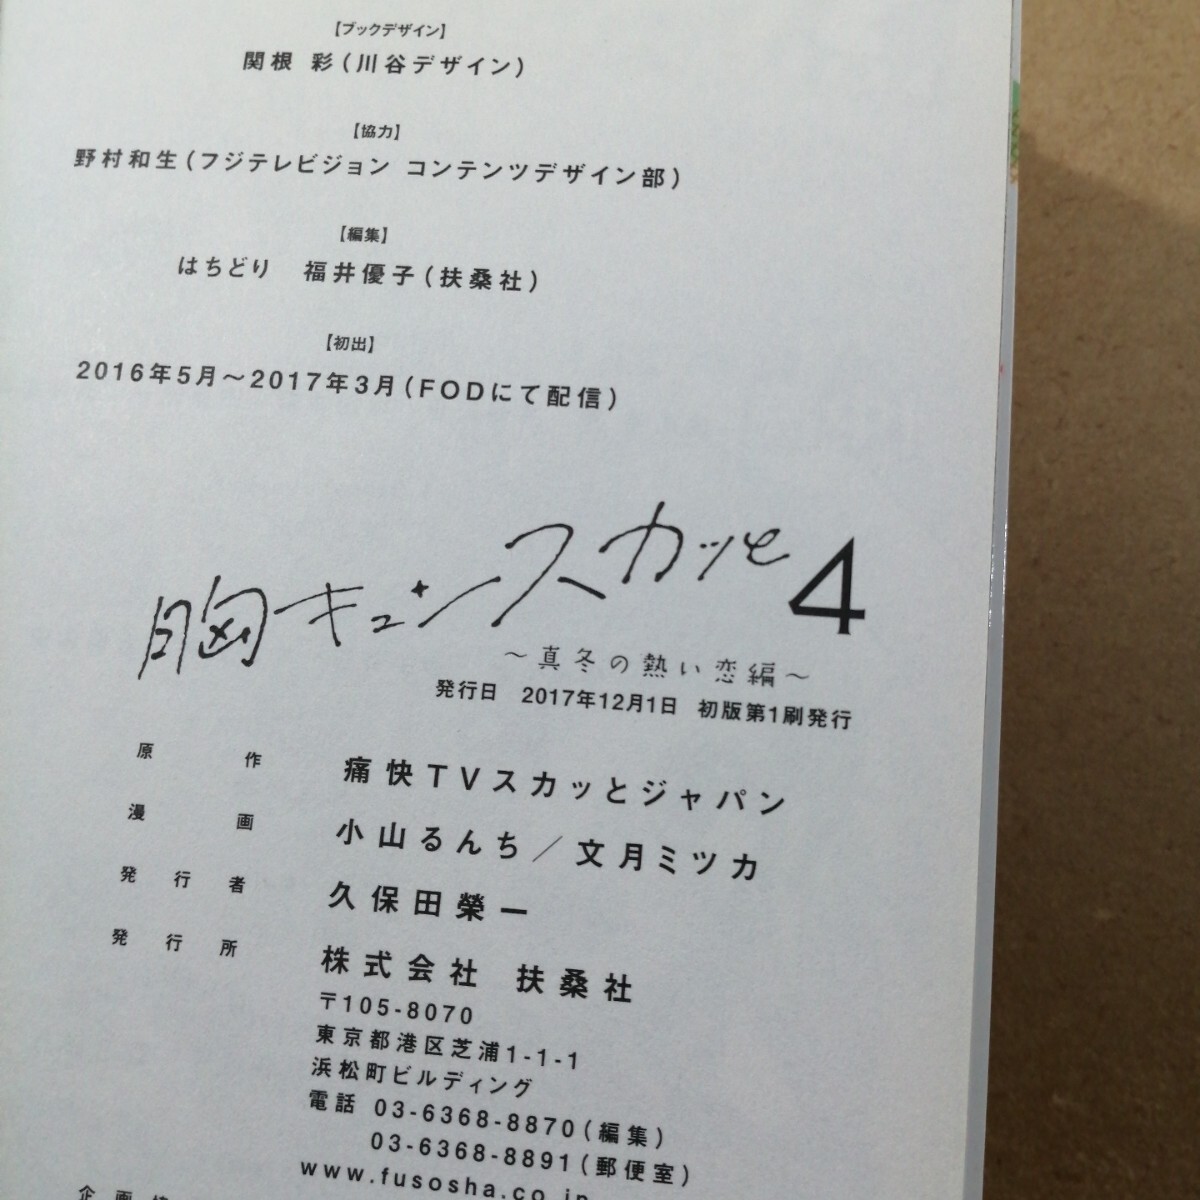 【ブックデザイン】
関根 彩（川谷デザイン）
【協力】
野村和生（フジテレビジョン コンテンツデザイン部）
【編集】
はちどり　福井優子（扶桑社）
【初出】
2016年5月～2017年3月（FODにて配信）
胸キュンスカッと4
～真冬の熱い恋編～
発行日　2017年12月1日　初版第1刷発行
原作　痛快TVスカッとジャパン
漫画　小山るんち／文月ミツカ
発行者　久保田榮一
発行所　株式会社 扶桑社
〒105-8070
東京都港区芝浦1-1-1
浜松町ビルディング
電話 03-6368-8870（編集）
03-6368-8891（郵便室）
www.fusosha.co.jp
企画